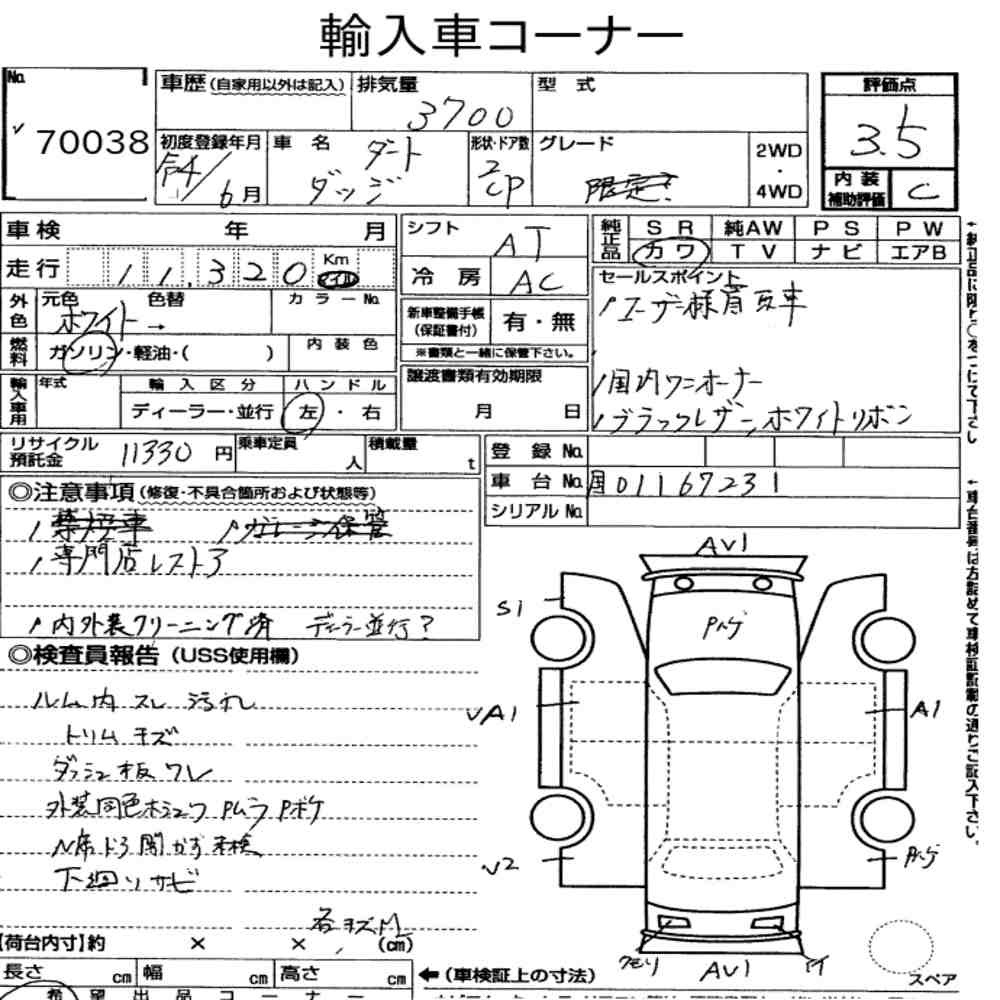 輸入車コーナー
No. 70038
車歴(自家用以外は記入) 排気量 3700 型式
初度登録年月 6月 車名 ダート ダッジ 形状・ドア数 2 CP グレード 限定 2WD・4WD
評価点 3.5
内装補助評価 C
車検 年 月
走行 11,320 Km マイル
外色 元色 ホワイト → 色替 カラーNo.
燃料 ガソリン・軽油・( ) 内装色
輸入車用 年式 輸入区分 ハンドル
ディーラー・並行 左・右
シフト AT
冷房 AC
新車整備手帳(保証書付) 有・無
※書類と一緒に保管下さい。
譲渡書類有効期限
月 日
純正品 SR 純AW PS PW
カワ TV ナビ エアB
セールスポイント
国内ワンオーナー
ブラックレザー、ホワイトリボン
←純正品に限り○をつけて下さい
リサイクル預託金 11330円 乗車定員 人 積載量 t
登録No.
車台No. 国01167231
シリアルNo.
←車台番号は左詰めで車検証記載の通りご記入下さい。
◎注意事項(修復・不具合箇所および状態等)
禁煙車 ガレージ保管
専門店レストア
内外装クリーニング済 ディーラー並行?
◎検査員報告(USS使用欄)
ルーム内スレ 汚れ
トリムキズ
ダッシュ板ワレ
外装同色ホシュウ Pムラ Pボケ
N席ドア開かず未検
下廻りサビ
各キズM
AV1
S1
Pハゲ
VA1
A1
V2
Pハゲ
クモリ
AV1
スペア
【荷台内寸】約 × × (cm)
長さ cm 幅 cm 高さ cm
←(車検証上の寸法)
希望出品コーナー